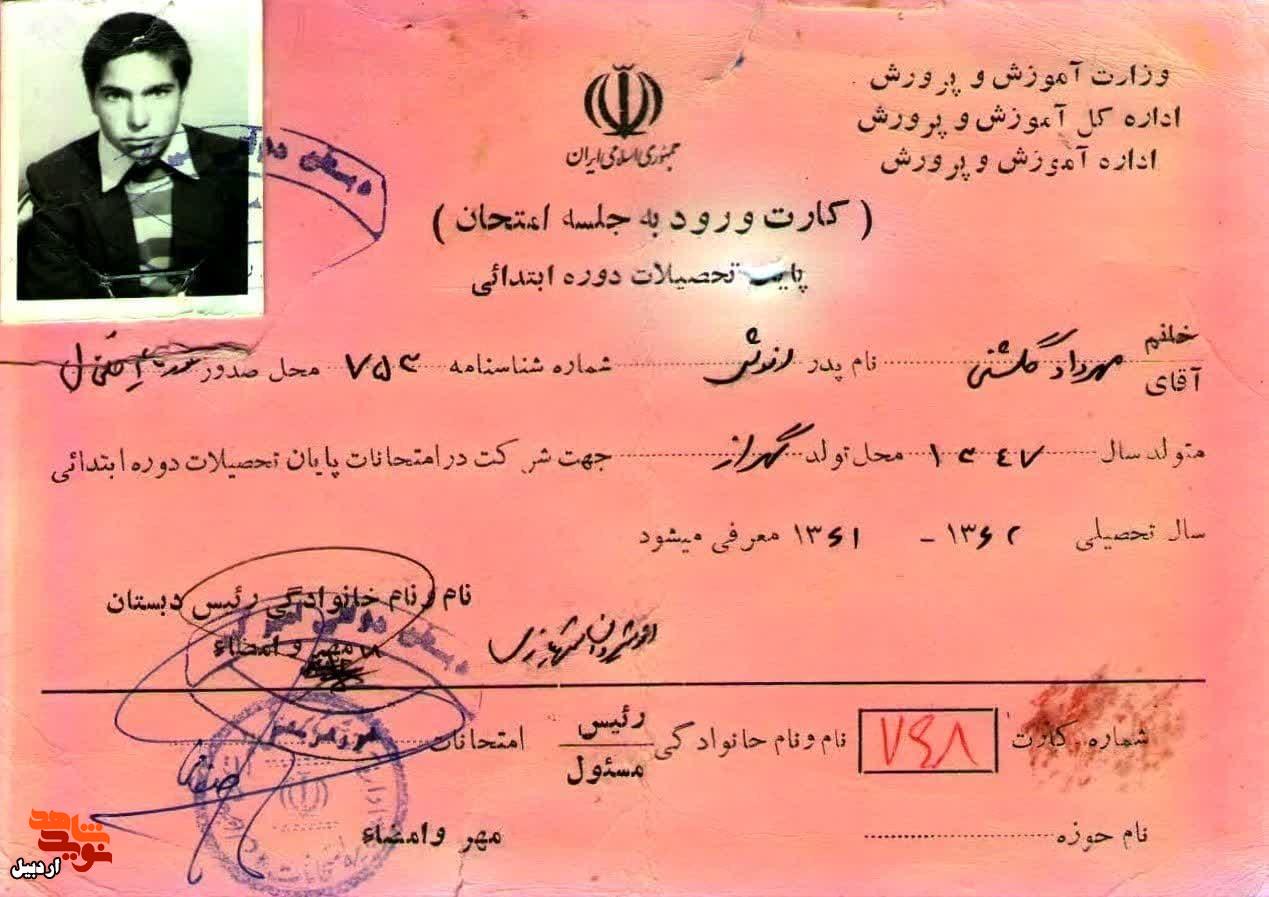 وزارت آموزش و پرورش
اداره کل آموزش و پرورش
اداره آموزش و پرورش
جمهوری اسلامی ایران
( کارت ورود به جلسه امتحان )
پایان تحصیلات دوره ابتدائی
خانم
آقای مهرداد گلشنی نام پدر شماره شناسنامه ۷۵۳ محل صدور
متولد سال ۱۳٤۷ محل تولد جهت شرکت در امتحانات پایان تحصیلات دوره ابتدائی
سال تحصیلی ۱۳۶۲ - ۱۳۶۱ معرفی میشود
نام و نام خانوادگی رئیس دبستان
مهر و امضاء
شماره کارت ۷۴۸ نام و نام خانوادگی رئیس مسئول امتحانات
نام حوزه مهر و امضاء
نوید شاهد
اردبیل